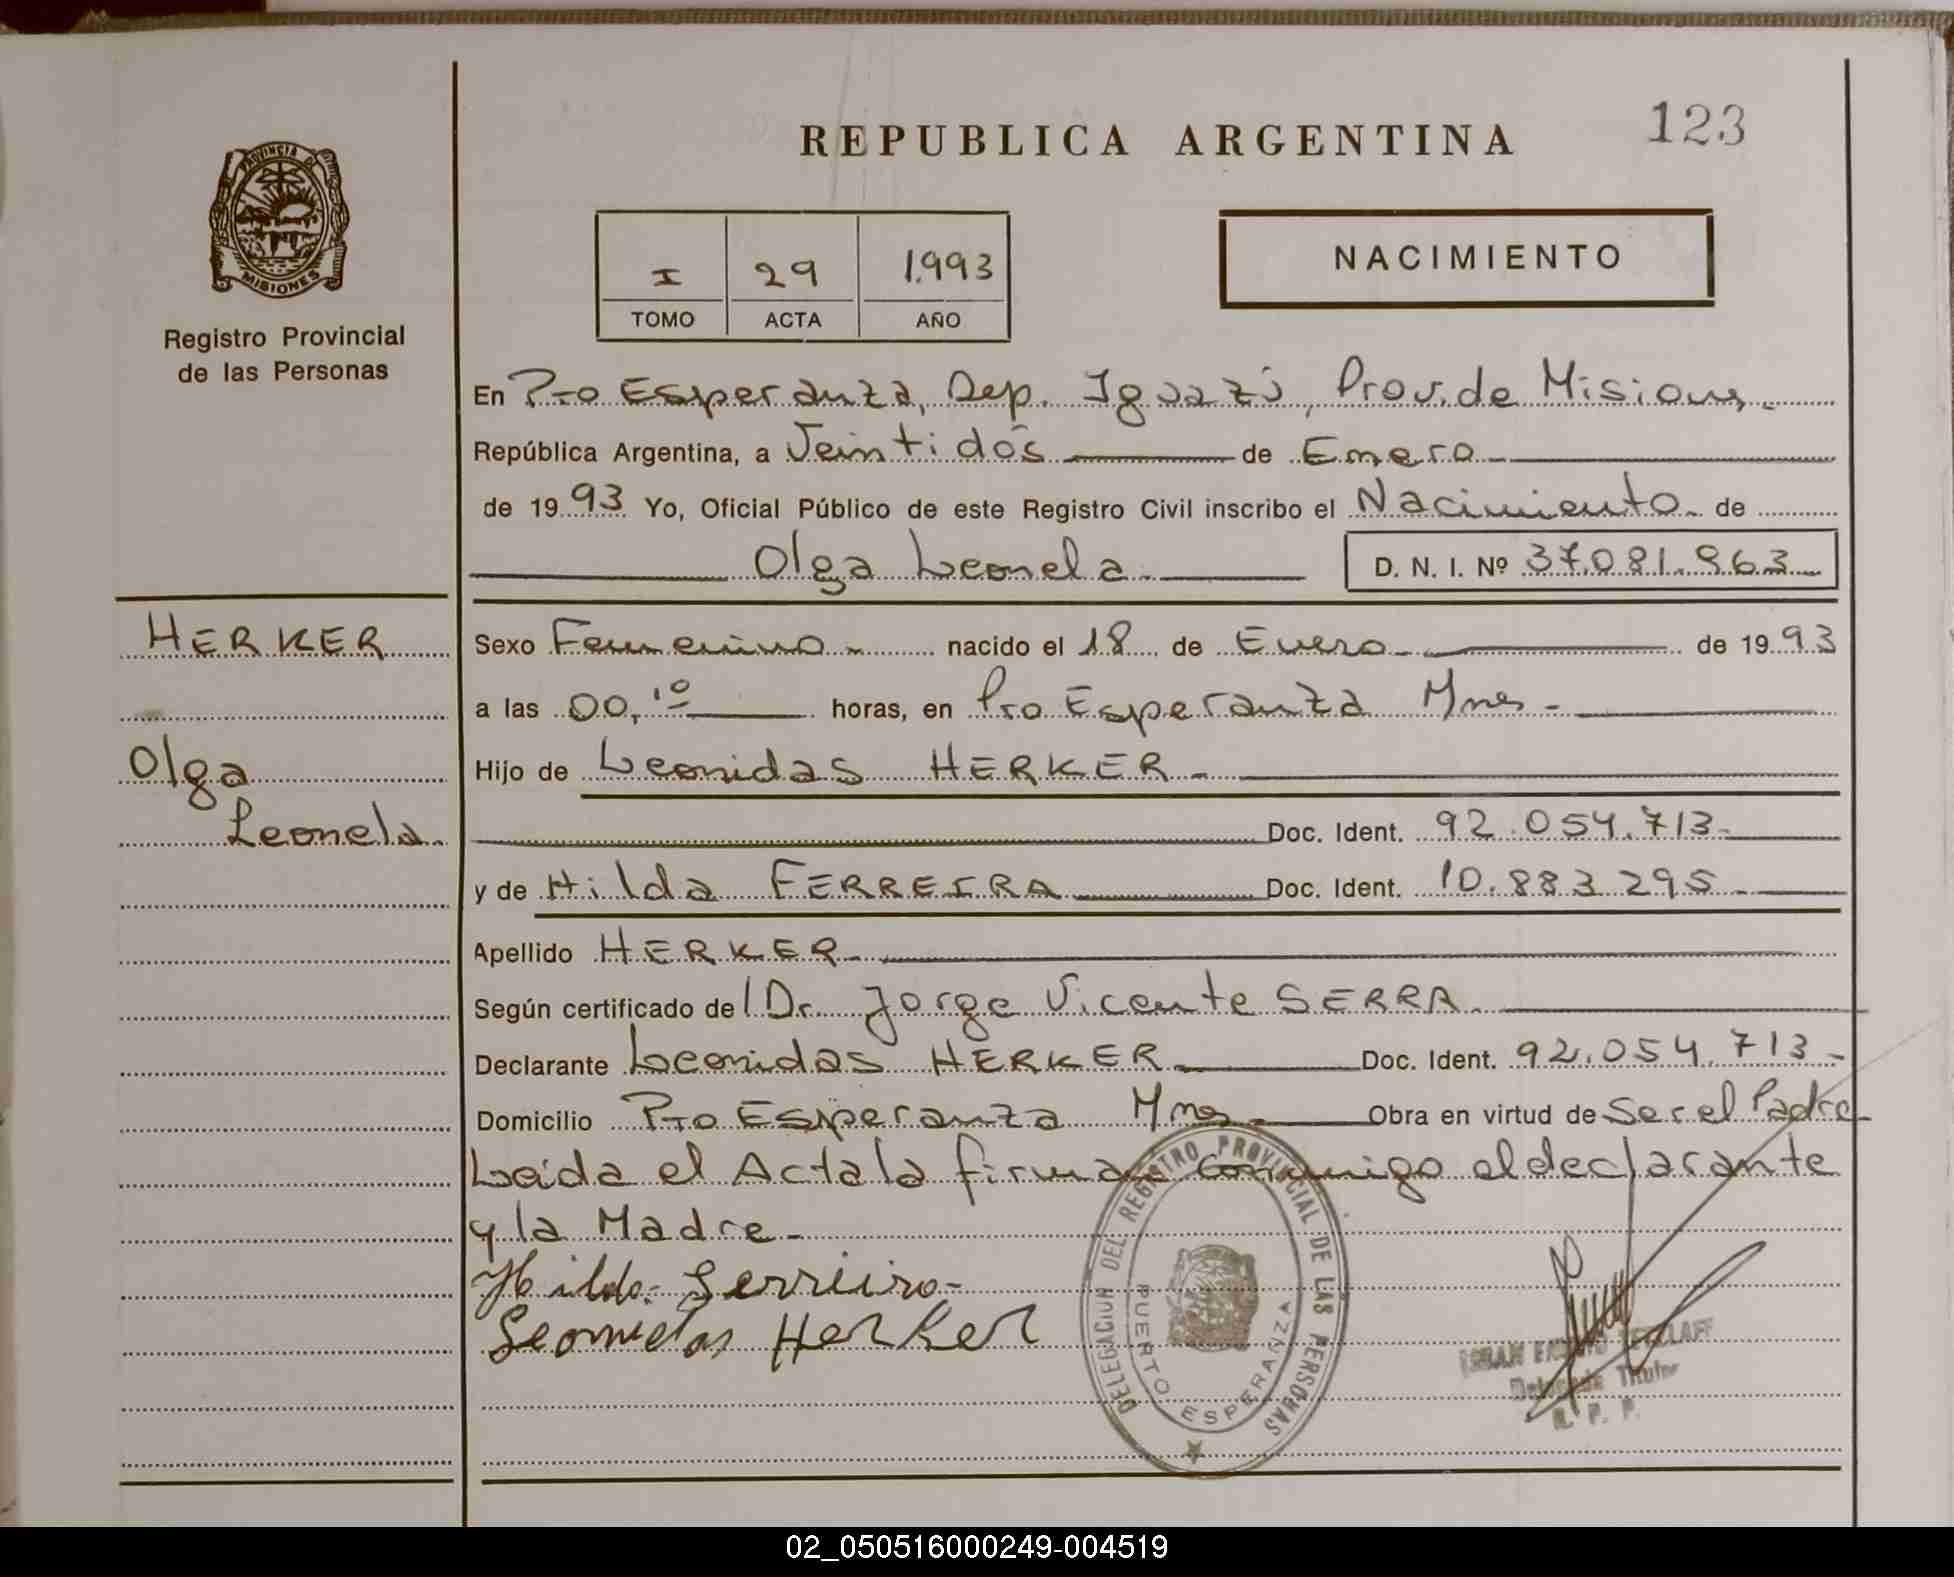 REPUBLICA ARGENTINA
123
PROVINCIA DE
MISIONES
Registro Provincial
de las Personas
I 29 1.993
TOMO ACTA AÑO
NACIMIENTO
En Pto Esperanza, Dep. Iguazú, Prov. de Misiones.
República Argentina, a Veintidós de Enero
de 1993 Yo, Oficial Público de este Registro Civil inscribo el Nacimiento de
Olga Leonela D. N. I. Nº 37.081.963
HERKER
Olga
Leonela.
Sexo Femenino nacido el 18 de Enero de 1993
a las 00,10 horas, en Pto Esperanza Mnes-
Hijo de Leonidas HERKER-
Doc. Ident. 92.054.713-
y de Hilda FERREIRA Doc. Ident. 10.883.295-
Apellido HERKER
Según certificado de Dr. Jorge Vicente SERRA.
Declarante Leonidas HERKER Doc. Ident. 92.054.713-
Domicilio Pto Esperanza Mnes- Obra en virtud de Ser el Padre-
Leída el Acta la firman conmigo el declarante
y la Madre-
Hilda Ferreira-
Leonidas Herker
DELEGACION DEL REGISTRO PROVINCIAL DE LAS PERSONAS
PUERTO ESPERANZA
Titular
R. P. P.
02_050516000249-004519